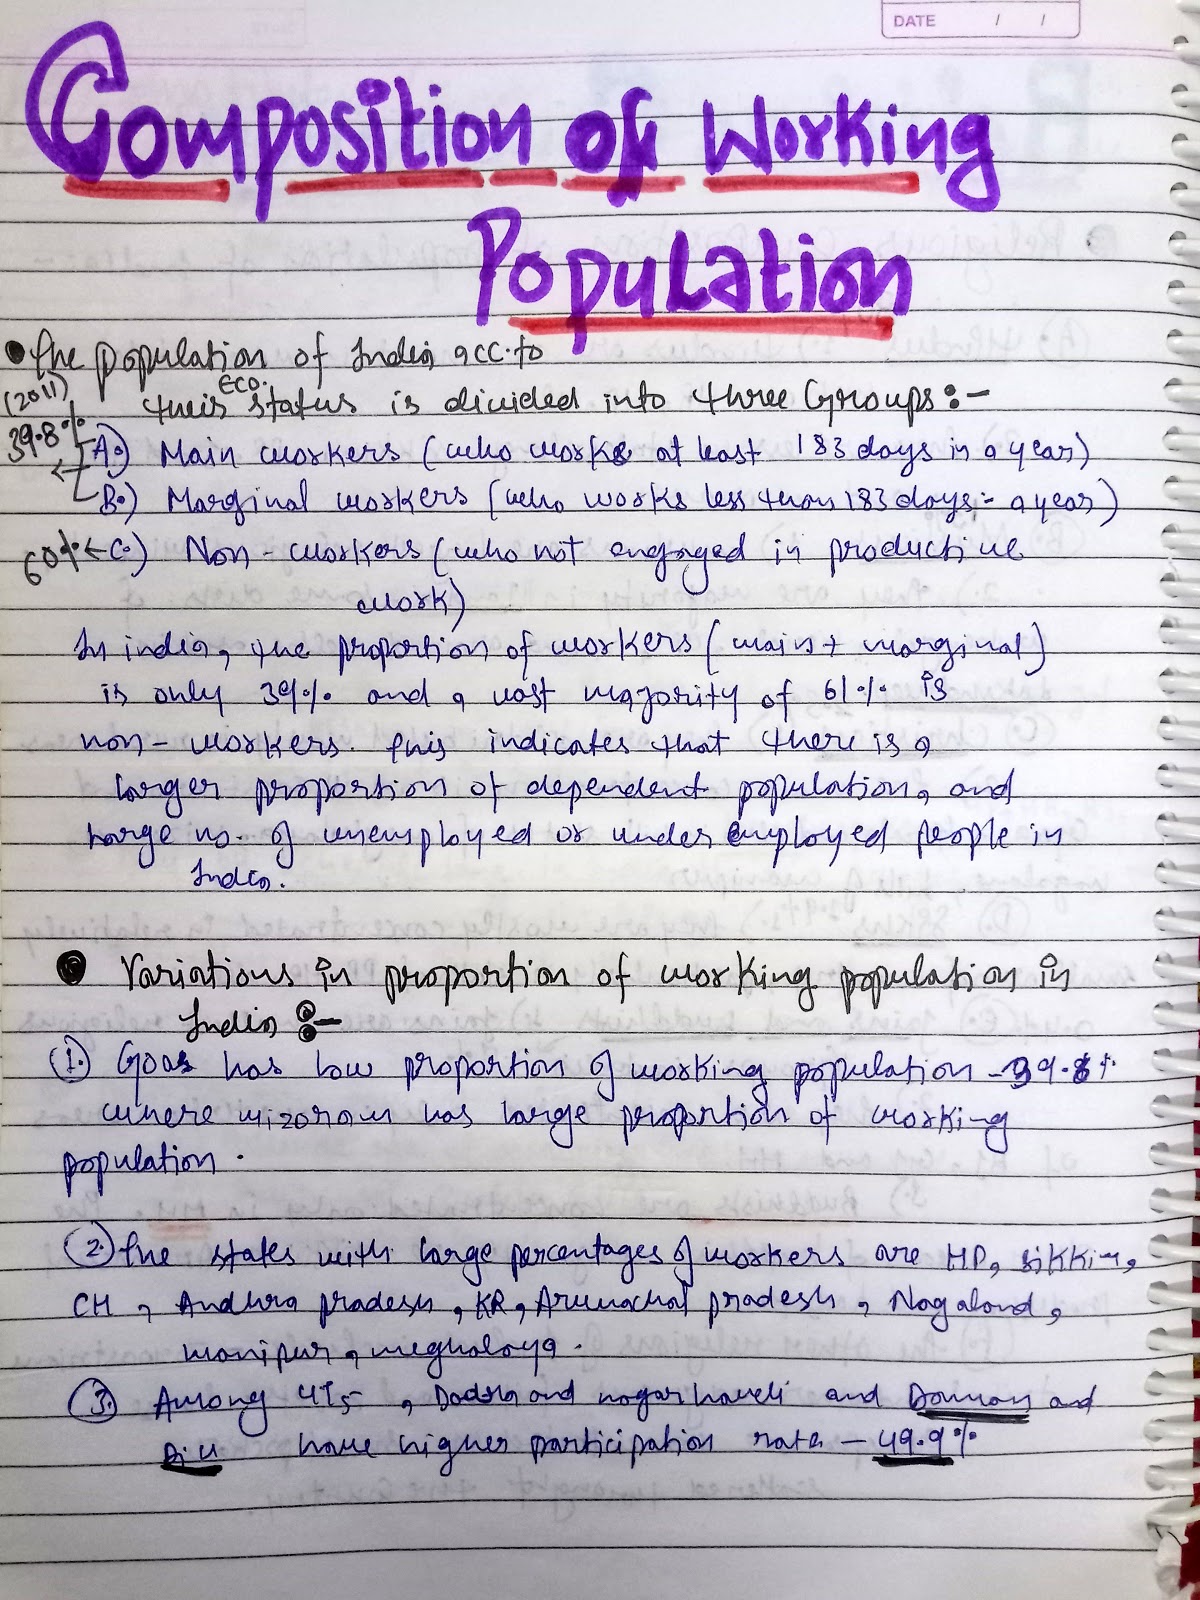 DATE / /
Composition of Working
Population
● The population of India acc. to
(2011) their eco. status is divided into three Groups :-
39.8%
A.) Main workers (who works at least 183 days in a year)
B.) Marginal workers (who works less than 183 days - a year)
60% ← C.) Non-workers (who not engaged in productive
work)
In india, the proportion of workers (main + marginal)
is only 39% and a vast majority of 61% is
non-workers. This indicates that there is a
larger proportion of dependent population, and
large no. of unemployed or under employed people in
India.
● Variations in proportion of working population in
India :-
(1.) Goa has low proportion of working population - 39.8%
where mizoram has large proportion of working
population.
(2.) The states with large percentages of workers are HP, Sikkim,
CH, Andhra pradesh, KR, Arunachal pradesh, Nagaland,
manipur, meghalaya.
(3.) Among UTs, Dadra and nagar haveli and Daman and
Diu have higher participation rate - 49.9%